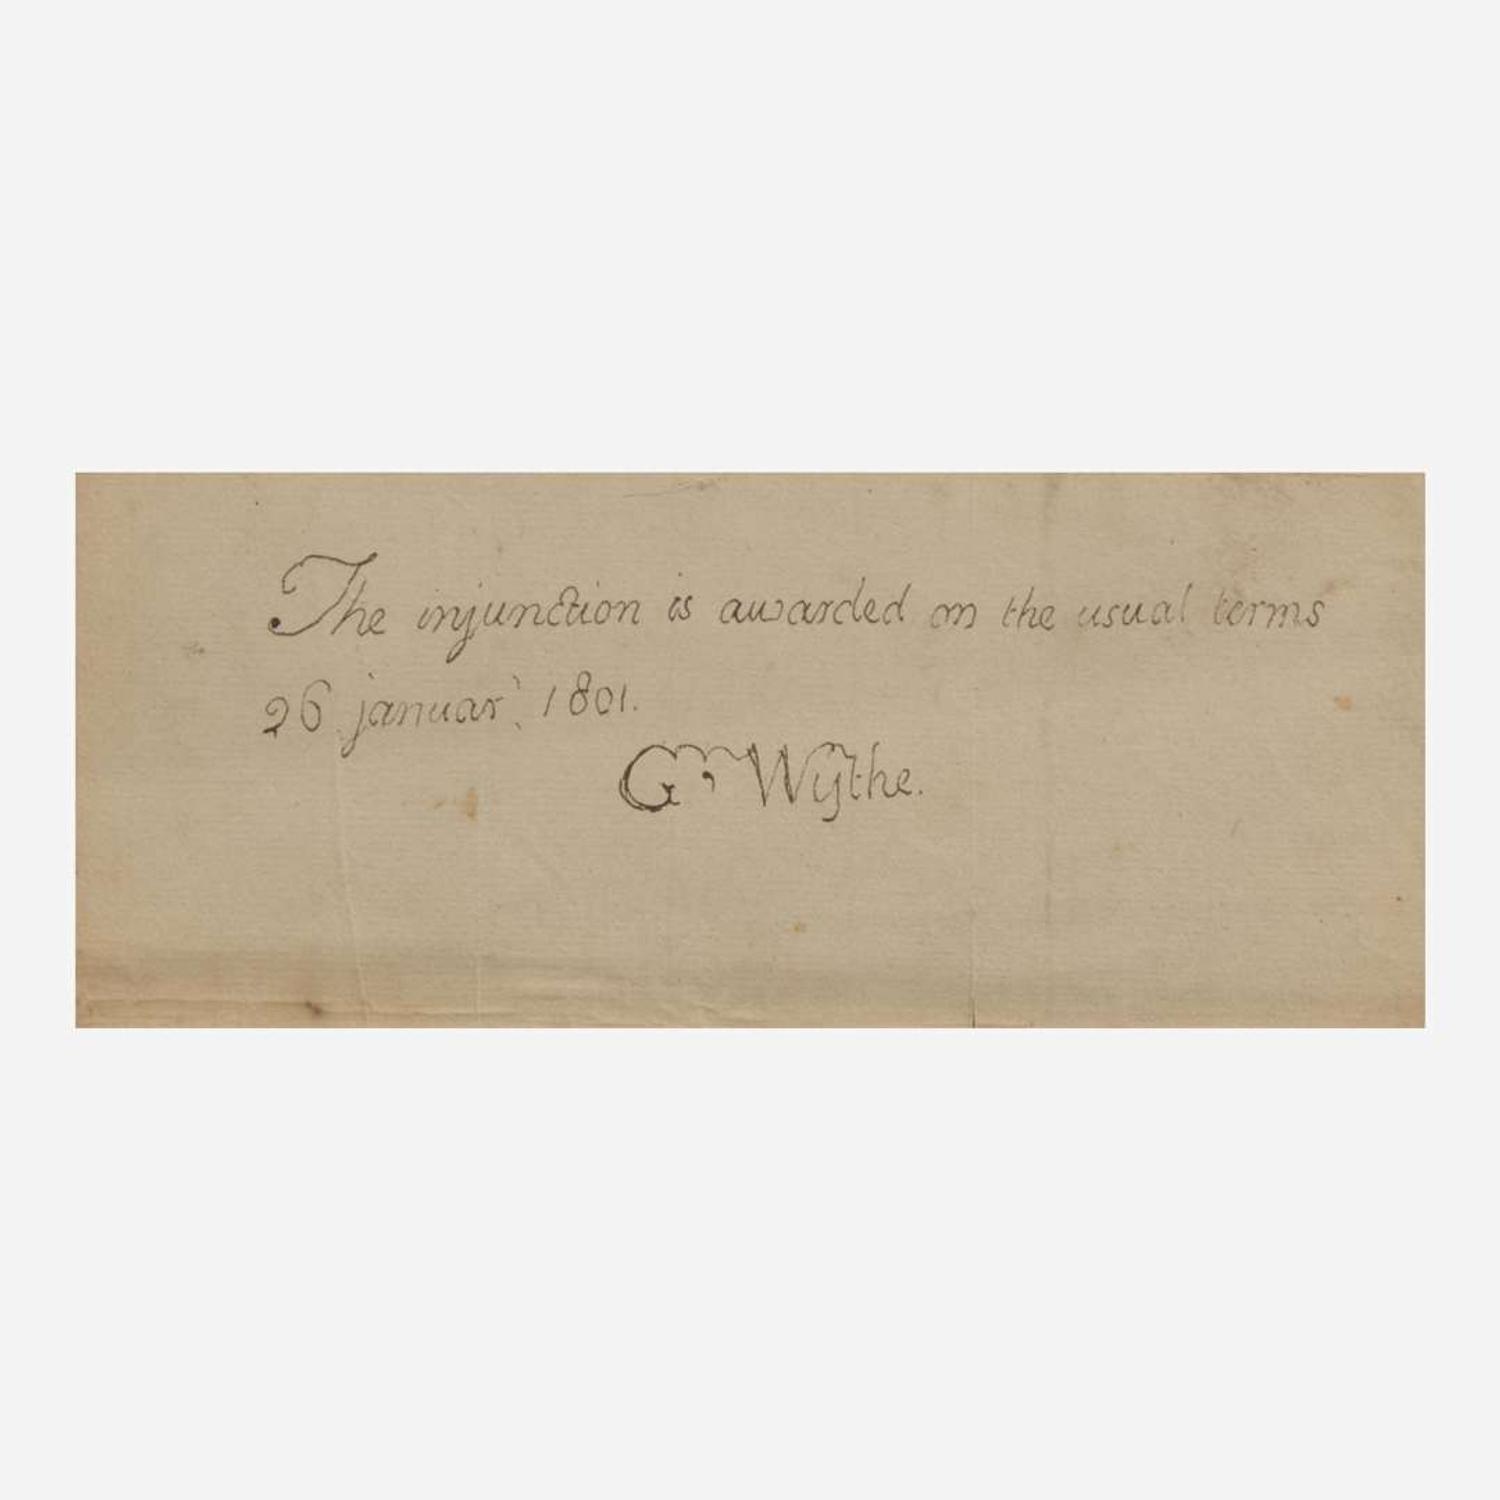 The injunction is awarded on the usual terms
26 januar', 1801.
G, Wythe.